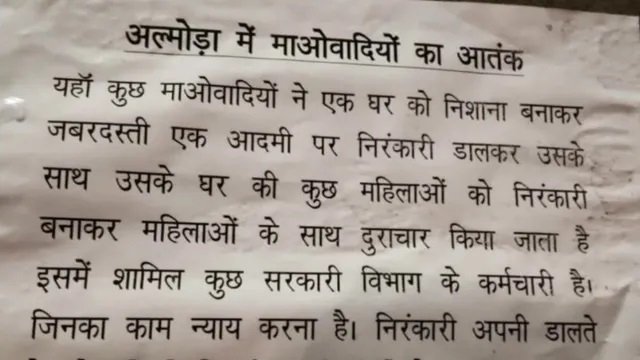 अल्मोड़ा में माओवादियों का आतंक
यहॉ कुछ माओवादियों ने एक घर को निशाना बनाकर
जबरदस्ती एक आदमी पर निरंकारी डालकर उसके
साथ उसके घर की कुछ महिलाओं को निरंकारी
बनाकर महिलाओं के साथ दुराचार किया जाता है
इसमें शामिल कुछ सरकारी विभाग के कर्मचारी है।
जिनका काम न्याय करना है। निरंकारी अपनी डालते